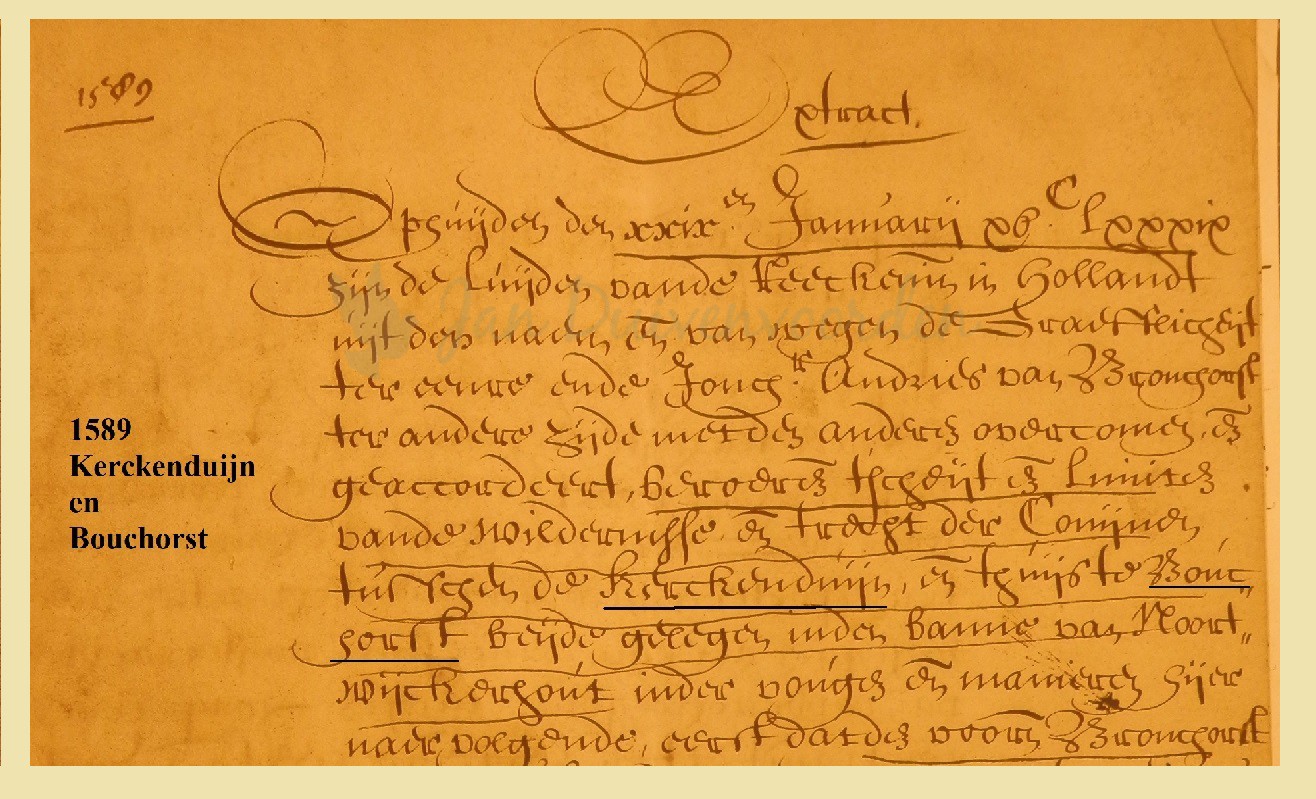 1589
Extract.
Ophuijden den xxixen. Januarij xvc. lxxxix
zijn de luijden vande Reeckenin in Hollandt
uijt den naem en van wegen de Graeffelicheijt
ter eenre ende Jonchr. Andries van Bronchorst
ter andere zijde met den anderen overcomen, en
geaccordeert, beroeren tscheijt en Limiten
vande wildernisse, en trecht der Conijnen
tusschen de Kerckenduijn, en thuijs te Bouc„
horst beijde gelegen inden banne van Noort„
wijckerhout inder vougen en manieren hijer
naer volgende, eerst dat den voorn Bronchorst
1589
Kerckenduijn
en
Bouchorst
Jan Duivenvoorden